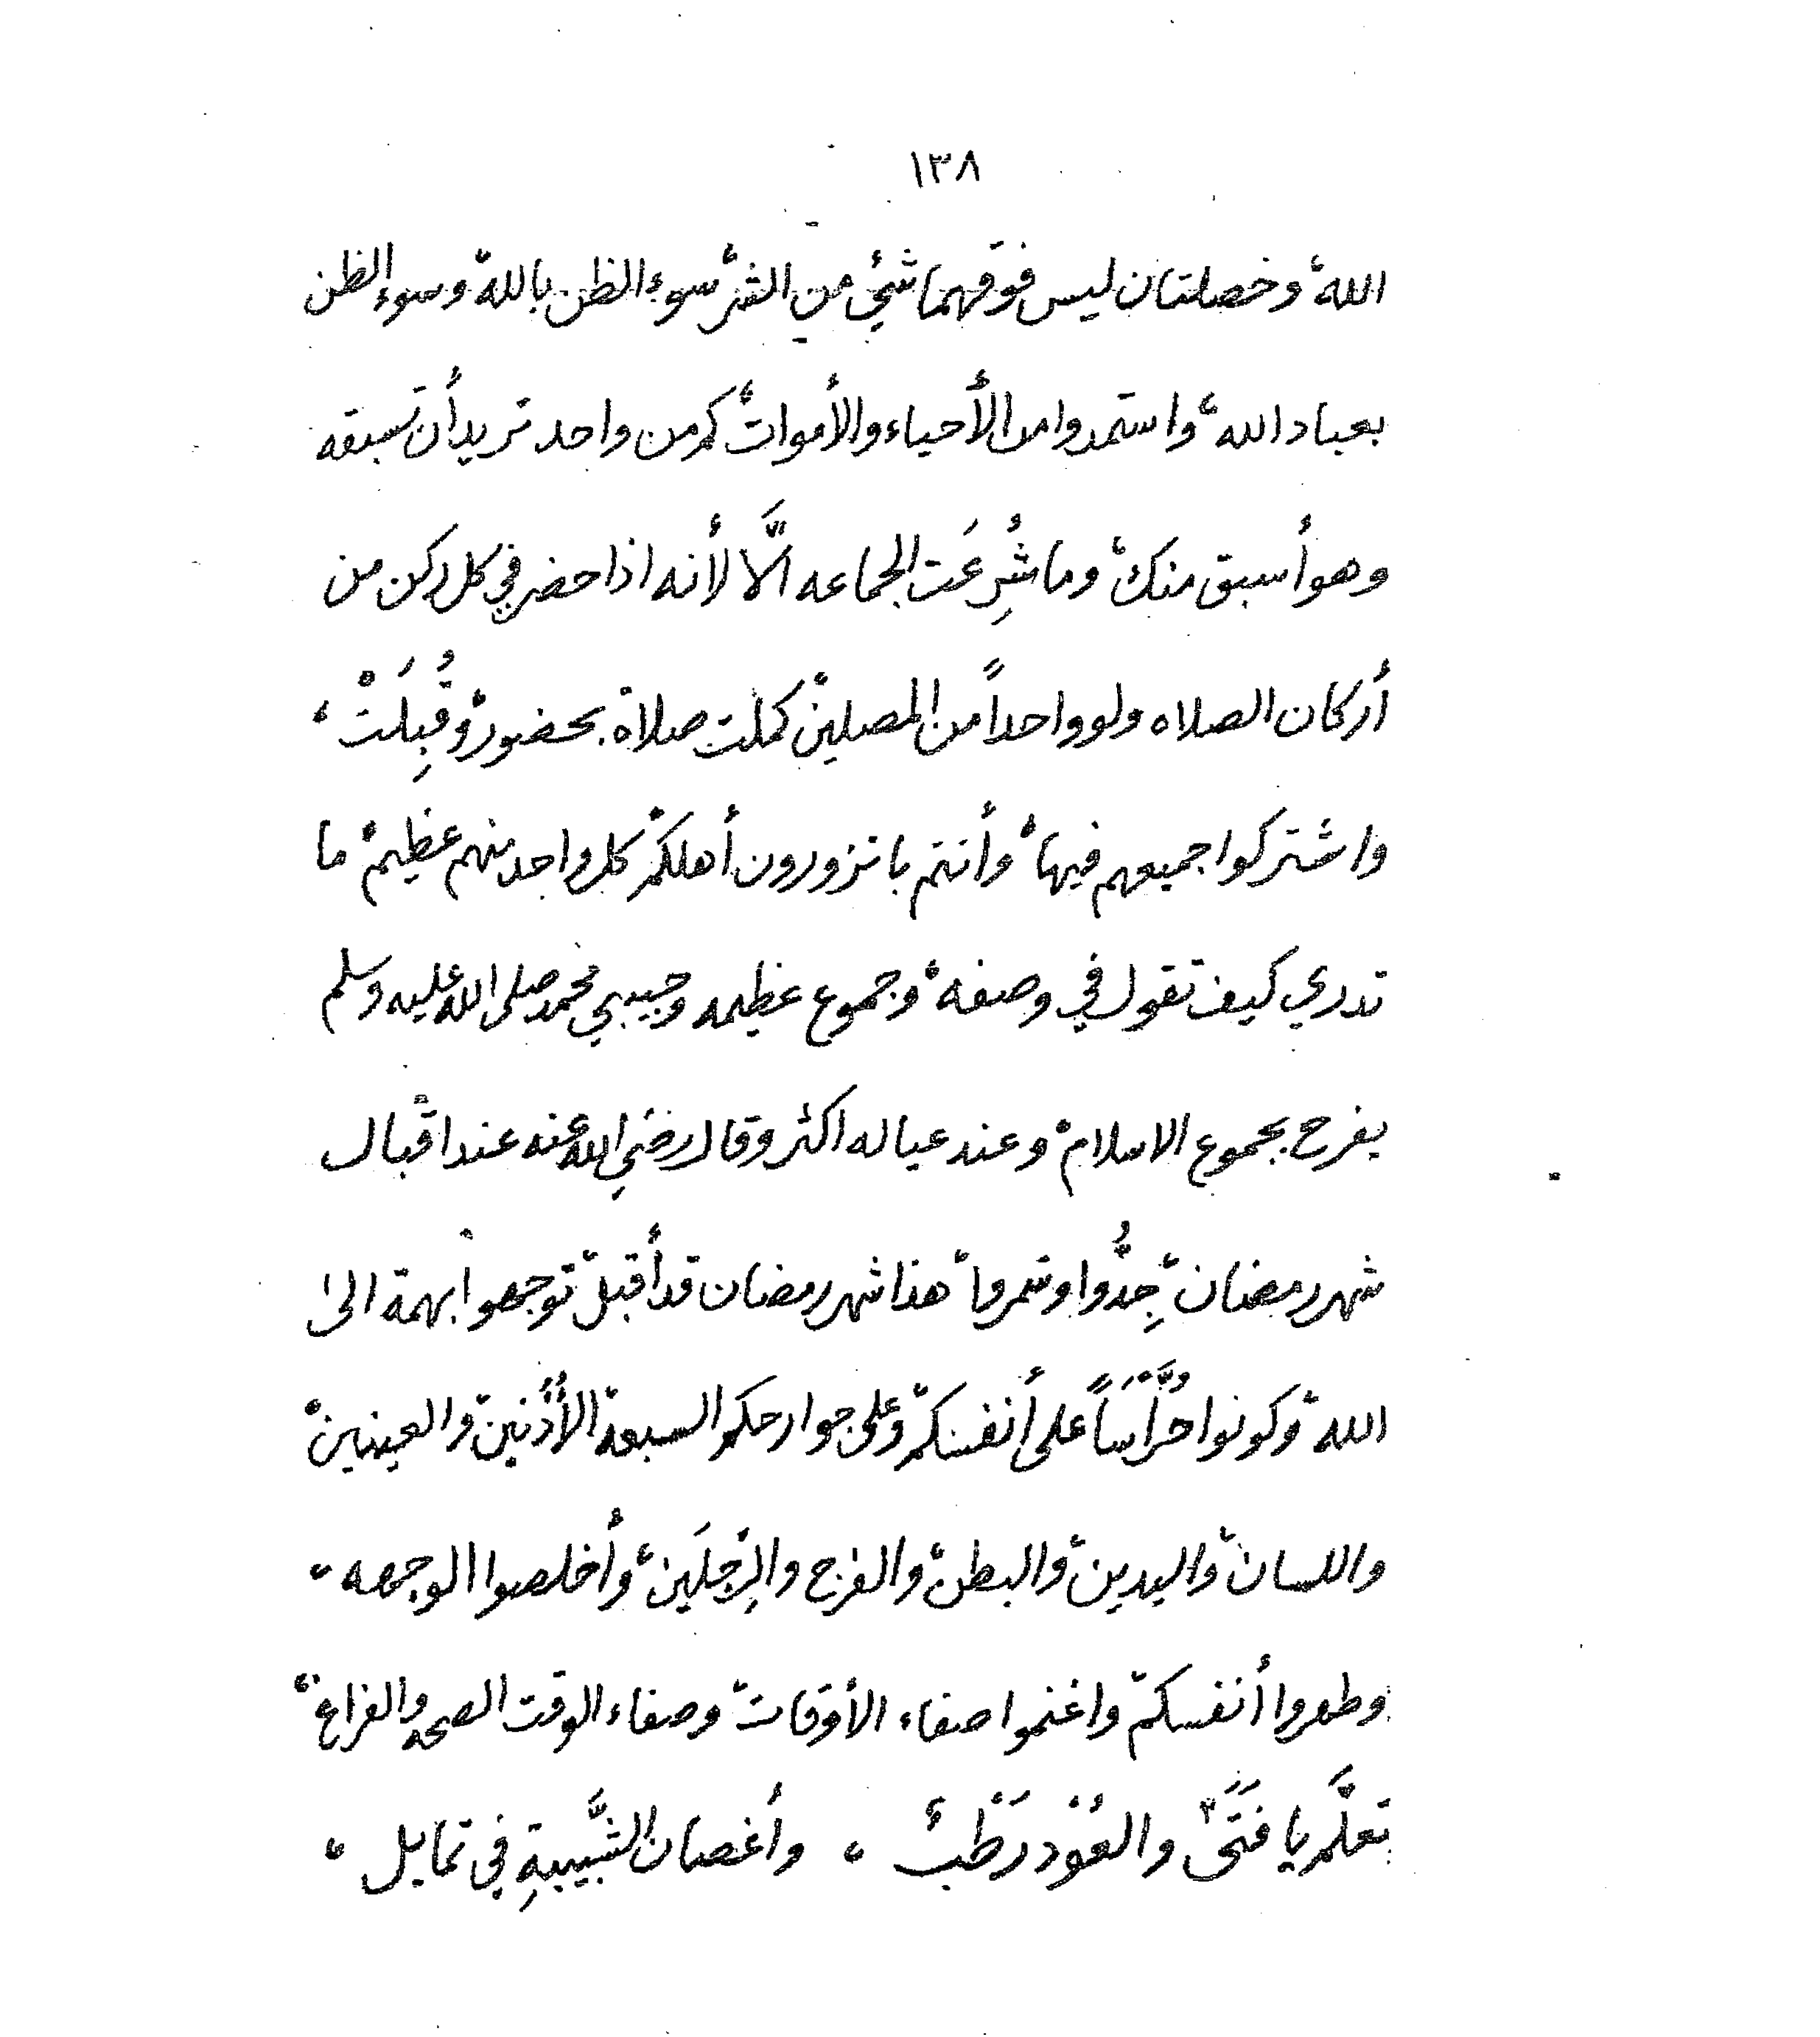 ١٣٨
الله، وخصلتان ليس فوقهما شيٌ من الشر، سوء الظن بالله، وسوء الظن
بعباد الله، واستمدوا من الأحياء والأموات، كم من واحد تريد أن تسبقه
وهو أسبق منك، وما شُرِعَت الجماعه الَّا لأنه اذا حضر في كل ركن من
أركان الصلاه ولو واحداً من المصلين، كملت صلاة بحضور، وقُبِلَتْ،
واشتركوا جميعهم فيها، وأنتم با تزورون أهلكم، كل واحد منهم عظيم، ما
تدري كيف تقول في وصفه، وجموع عظيمه وحبيبي محمد صلى الله عليه وسلم
يفرح بجموع الاسلام، وعند عياله اكثر وقال رضي الله عنه عند اقبال
شهر رمضان، جِدُّوا وشمروا، هذا شهر رمضان قد أقبل، توجهوا بهمة الى
الله، وكونوا حُرَّاسَاً على أنفسكم، وعلى جوارحكم السبعة، الأُذُنين، والعينين،
واللسان، واليدين، والبطن، والفرج والرِّجلَين، وأخلصوا الوجهه،
وطهروا أنفسكم، واغنموا صفاء الأوقات، وصفاء الوقت الصحه والفراغ،
تعلَّم يا فَتَىً والعُوْد رَطْبٌ، وأغصان الشَّبيبةِ في تمايل،